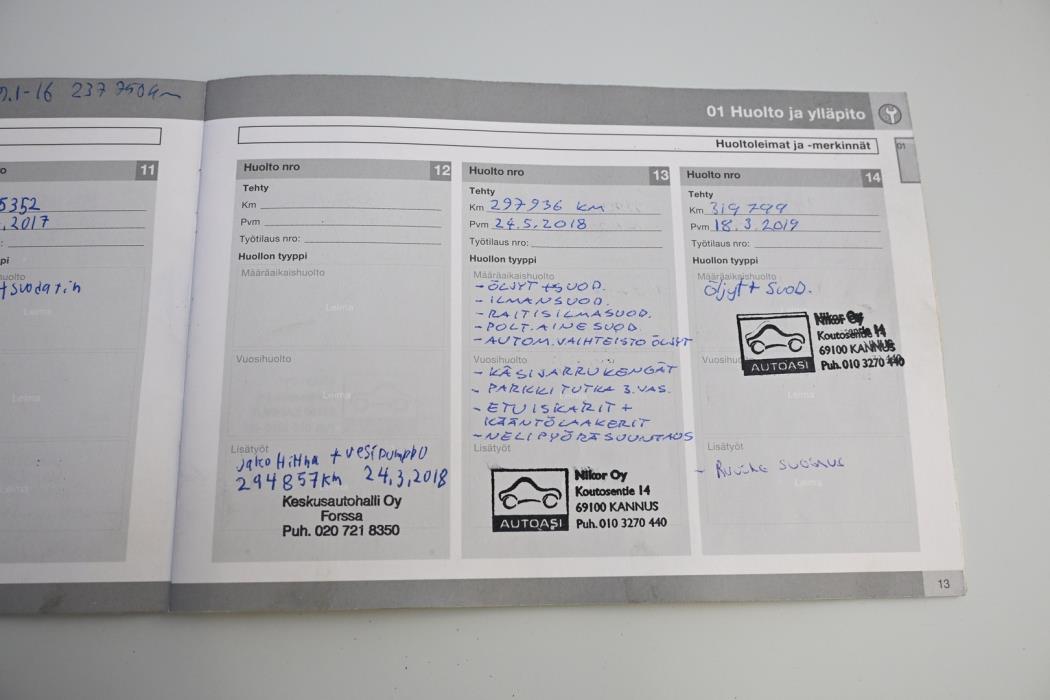 .1-16 237 750km
01 Huolto ja ylläpito
Huoltoleimat ja -merkinnät
01
o 11
5352
.2017
:
pi
huolto
+suodatin
Leima
Leima
Leima
Huolto nro 12
Tehty
Km
Pvm
Työtilaus nro:
Huollon tyyppi
Määräaikaishuolto
Leima
Vuosihuolto
Leima
Lisätyöt
Jakohihna + vesipumppu
294857km 24,3,2018
Keskusautohalli Oy
Forssa
Puh. 020 721 8350
Huolto nro 13
Tehty
Km 297936 km
Pvm 24.5.2018
Työtilaus nro:
Huollon tyyppi
Määräaikaishuolto
- ÖLJYT + SUOD.
- ILMANSUOD.
- RAITISILMASUOD.
- POLT.AINESUOD.
- AUTOM.VAIHTEISTO ÖLJYT
Vuosihuolto
- KÄSIJARRUKENGÄT
- PARKKITUTKA 3.VAS.
- ETUISKARIT +
KÄÄNTÖLAAKERIT
- NELIPYÖRÄSUUNTAUS
Lisätyöt
AUTOASI
Nikor Oy
Koutosentie 14
69100 KANNUS
Puh. 010 3270 440
Huolto nro 14
Tehty
Km 319 799
Pvm 18.3.2019
Työtilaus nro:
Huollon tyyppi
Määräaikaishuolto
Öljyt + Suod.
AUTOASI
Nikor Oy
Koutosentie 14
69100 KANNUS
Puh. 010 3270 440
Vuosihu
Leima
Lisätyöt
- Ruoste suojaus
13